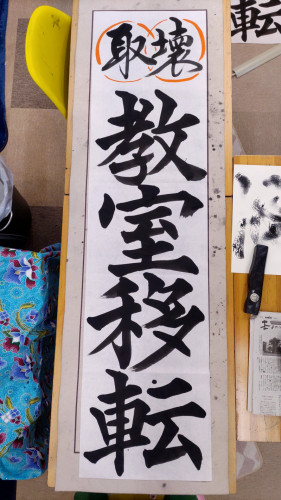 取壊
教室移転
転